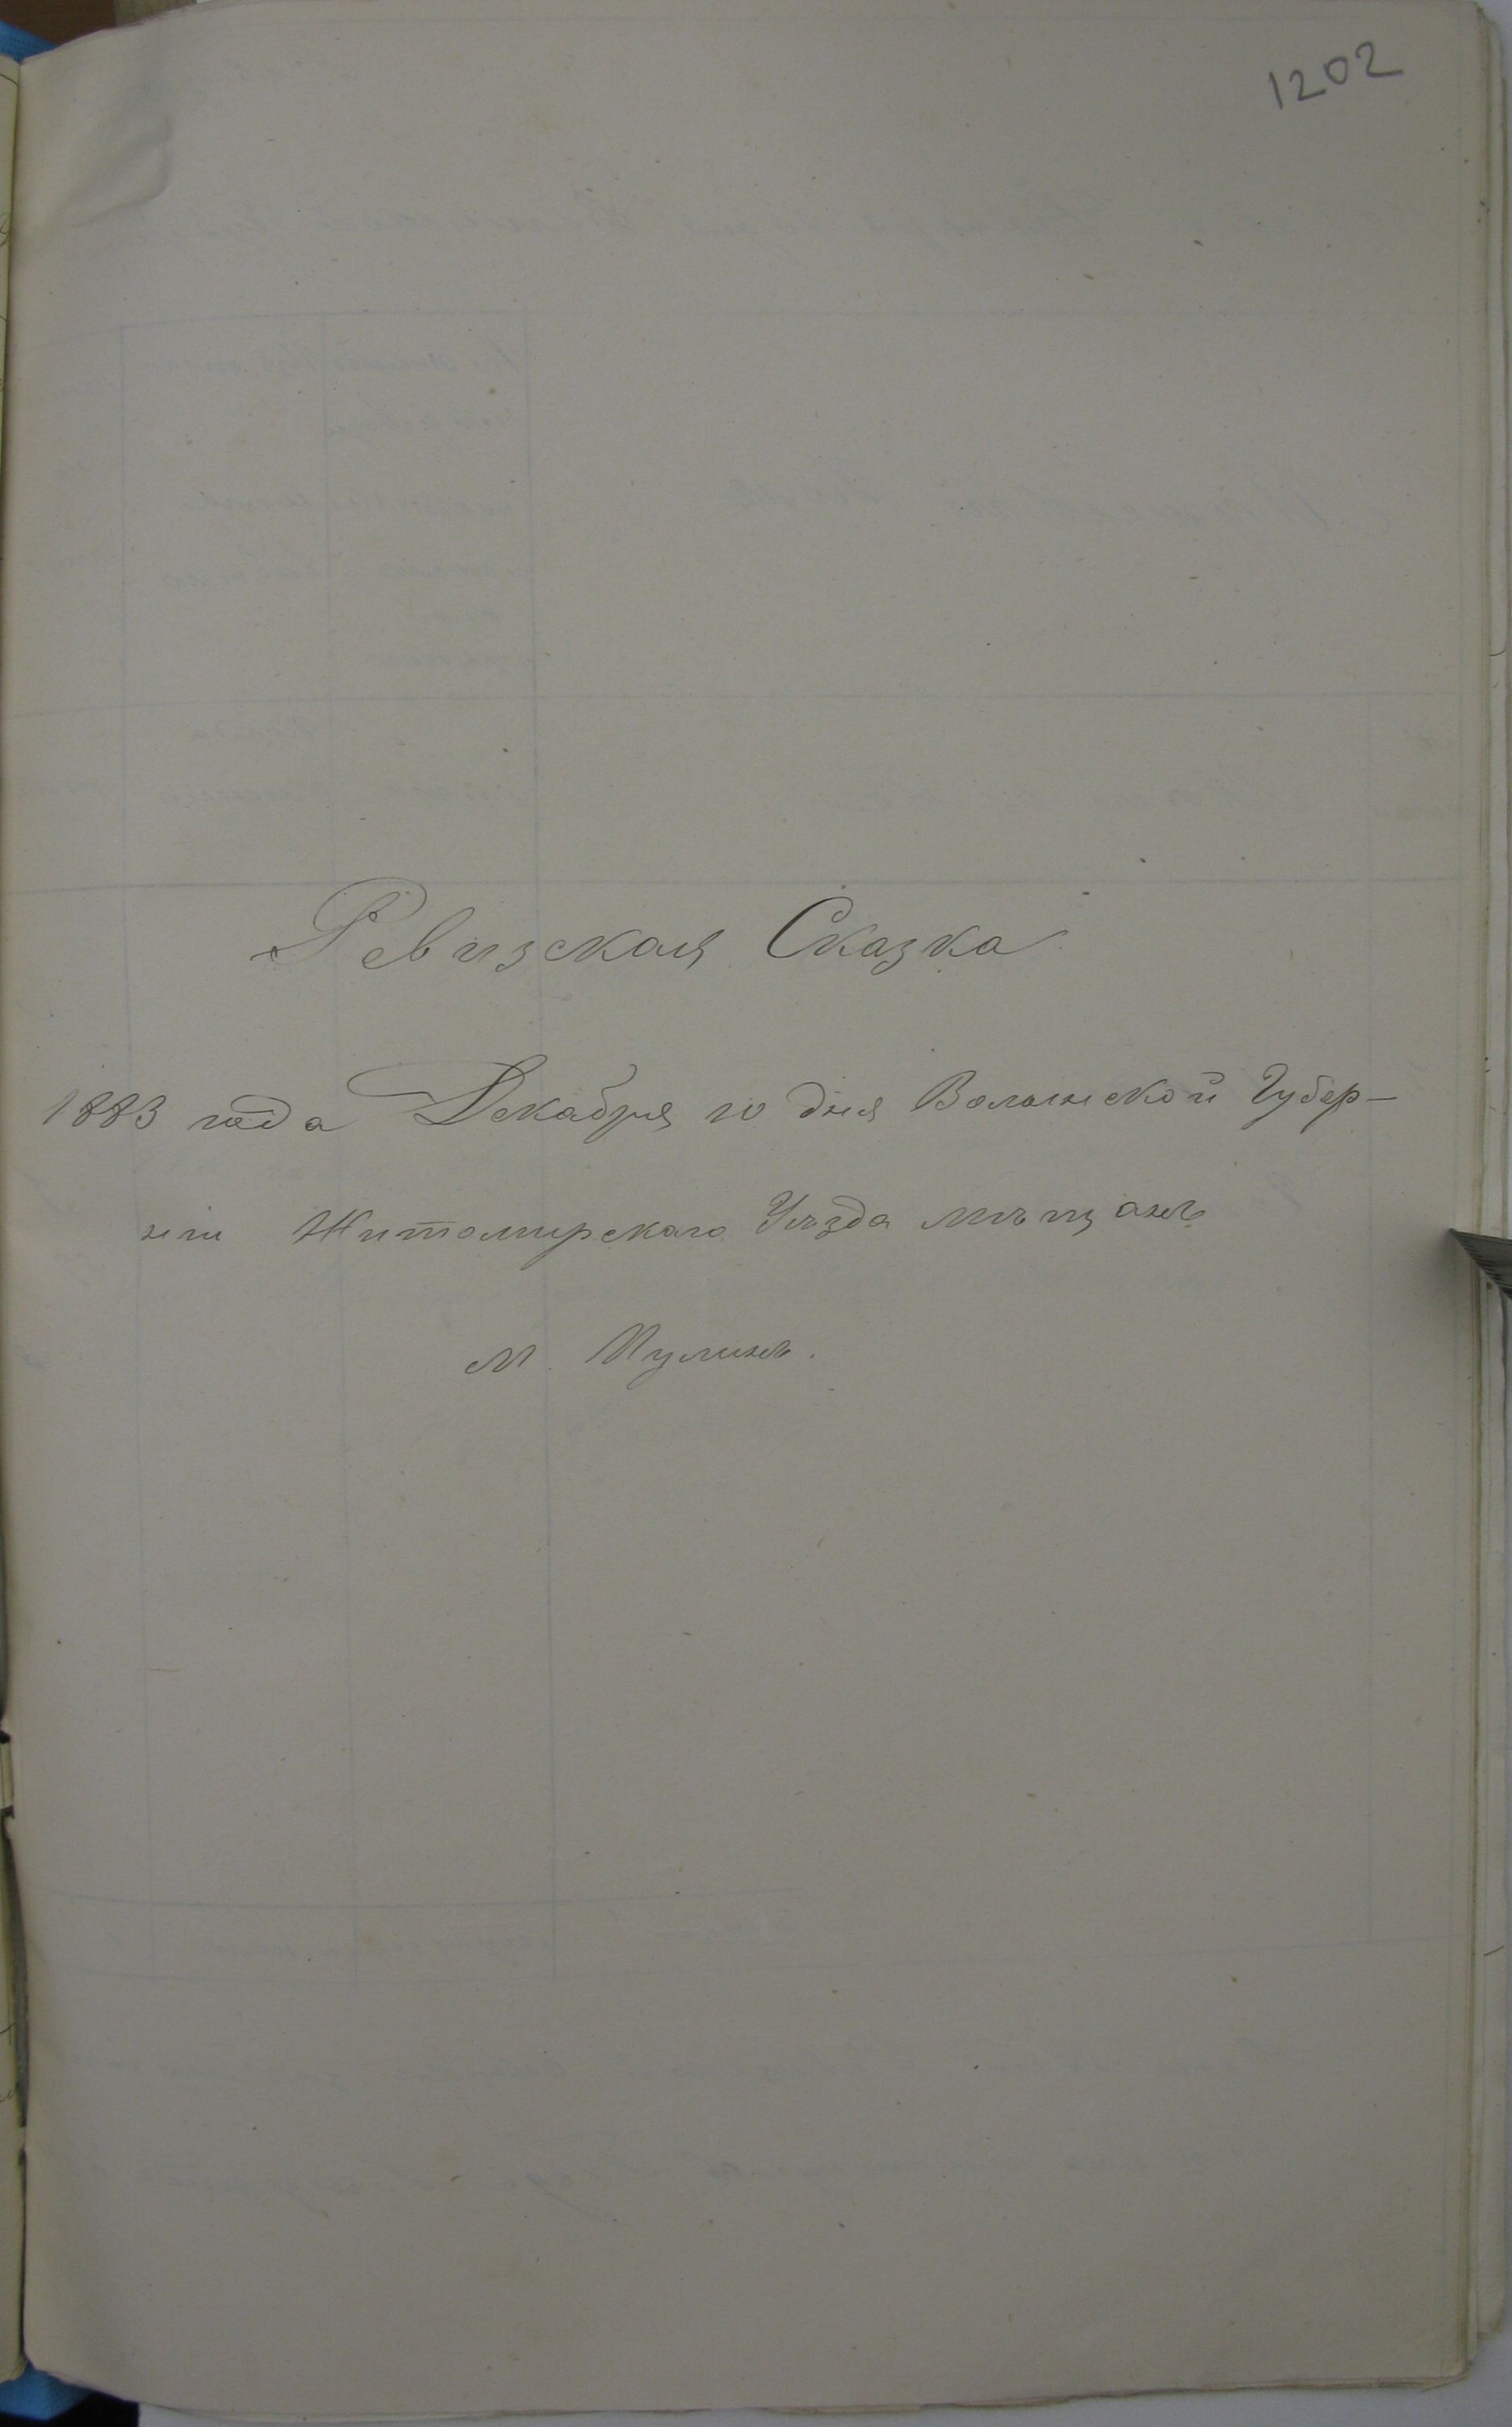 1202
Ревизская Сказка
1883 года Декабря 10 дня Волынской Губер-
нiи Житомирскаго Уѣзда мѣщанъ
м. Пулинъ.